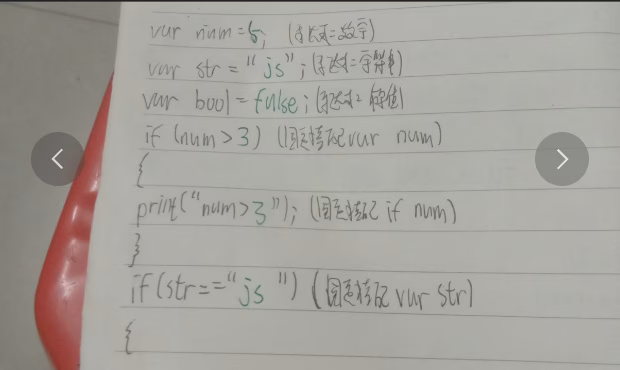 var num=5; (形式=数字)
var str = "js"; (形式=字符串)
var bool = false; (形式= 值)
if (num>3) (固定搭配var num)
{
print("num>3"); (固定搭配 if num)
}
if(str=="js ") (固定搭配 var str)
{